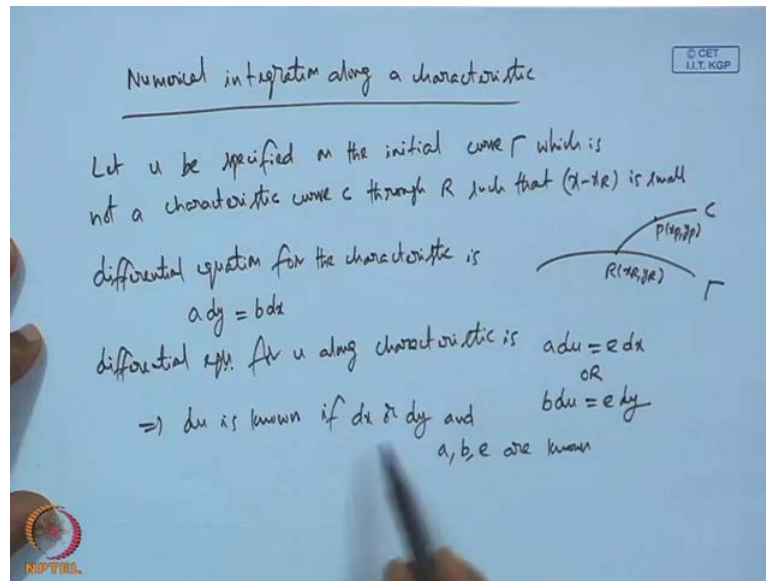 Numerical integration along a characteristic
© CET
I.I.T. KGP
Let u be specified on the initial curve Γ which is
not a characteristic curve c through R such that (x-xR) is small
differential equation for the characteristic is
a dy = b dx
C
P(xp,yp)
R(xR,yR)
Γ
differential eqn. for u along characteristic is a du = e dx
OR
b du = e dy
⇒ du is known if dx or dy and
a, b, e are known
NPTEL